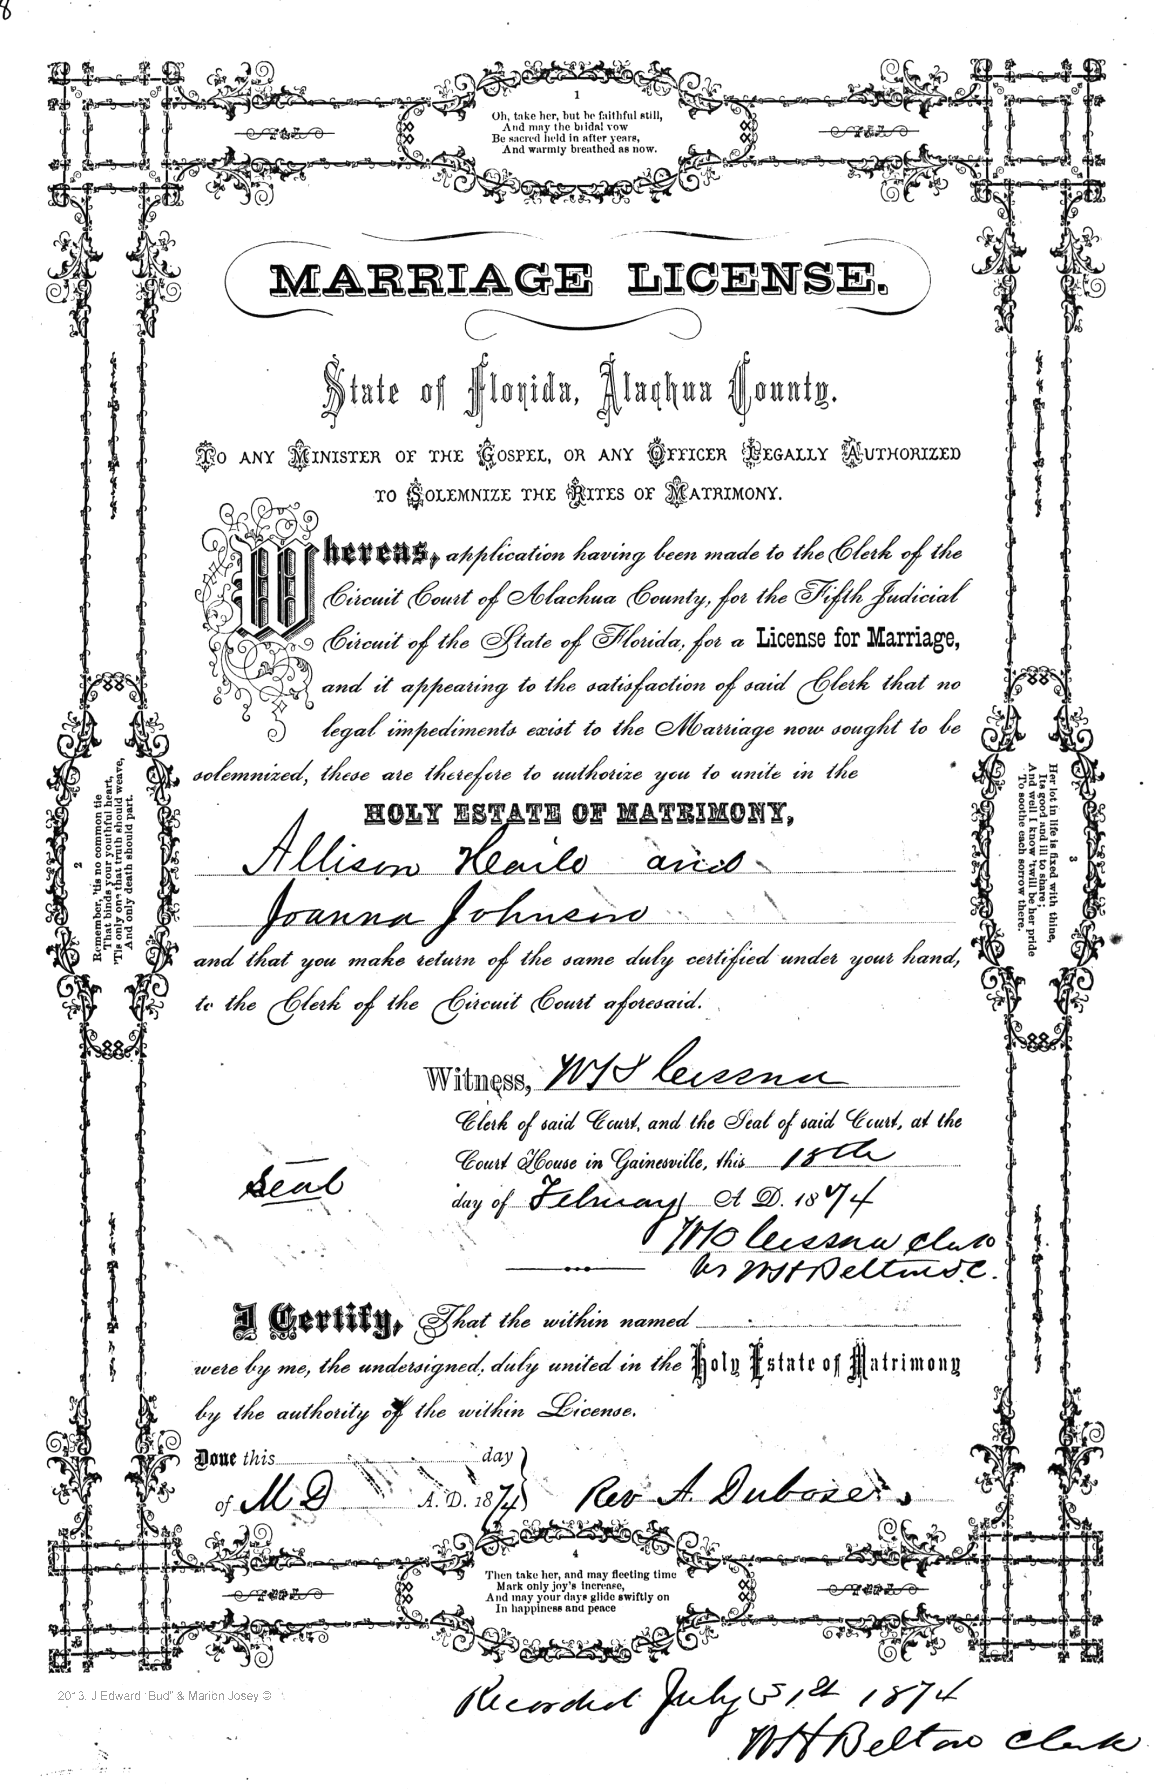 8
1
Oh, take her, but be faithful still,
And may the bridal vow
Be sacred held in after years,
And warmly breathed as now.
MARRIAGE LICENSE.
State of Florida, Alachua County.
TO ANY MINISTER OF THE GOSPEL, OR ANY OFFICER LEGALLY AUTHORIZED
TO SOLEMNIZE THE RITES OF MATRIMONY.
Whereas, application having been made to the Clerk of the
Circuit Court of Alachua County, for the Fifth Judicial
Circuit of the State of Florida, for a License for Marriage,
and it appearing to the satisfaction of said Clerk that no
legal impediments exist to the Marriage now sought to be
solemnized, these are therefore to authorize you to unite in the
HOLY ESTATE OF MATRIMONY,
Allison Haile and
Joanna Johnson
and that you make return of the same duly certified under your hand,
to the Clerk of the Circuit Court aforesaid.
2
Remember, 'tis no common tie
That binds your youthful heart,
'Tis only one that truth should weave,
And only death should part.
3
Her lot in life is fixed with thine,
Its good and ill to share;
And well I know 'twill be her pride
To soothe each sorrow there.
Witness, Cessna
Clerk of said Court, and the Seal of said Court, at the
Court House in Gainesville, this 18th
Seal
day of February A. D. 1874
Cessna Clerk
WH Belton D.C.
I Certify, That the within named
were by me, the undersigned, duly united in the Holy Estate of Matrimony
by the authority of the within License.
Done this day
of M D A. D. 1874 Rev A. Dubose
4
Then take her, and may fleeting time
Mark only joy's increase,
And may your days glide swiftly on
In happiness and peace
2013. J Edward "Bud" & Marion Josey ©
Recorded July 31st 1874
WH Belton Clerk